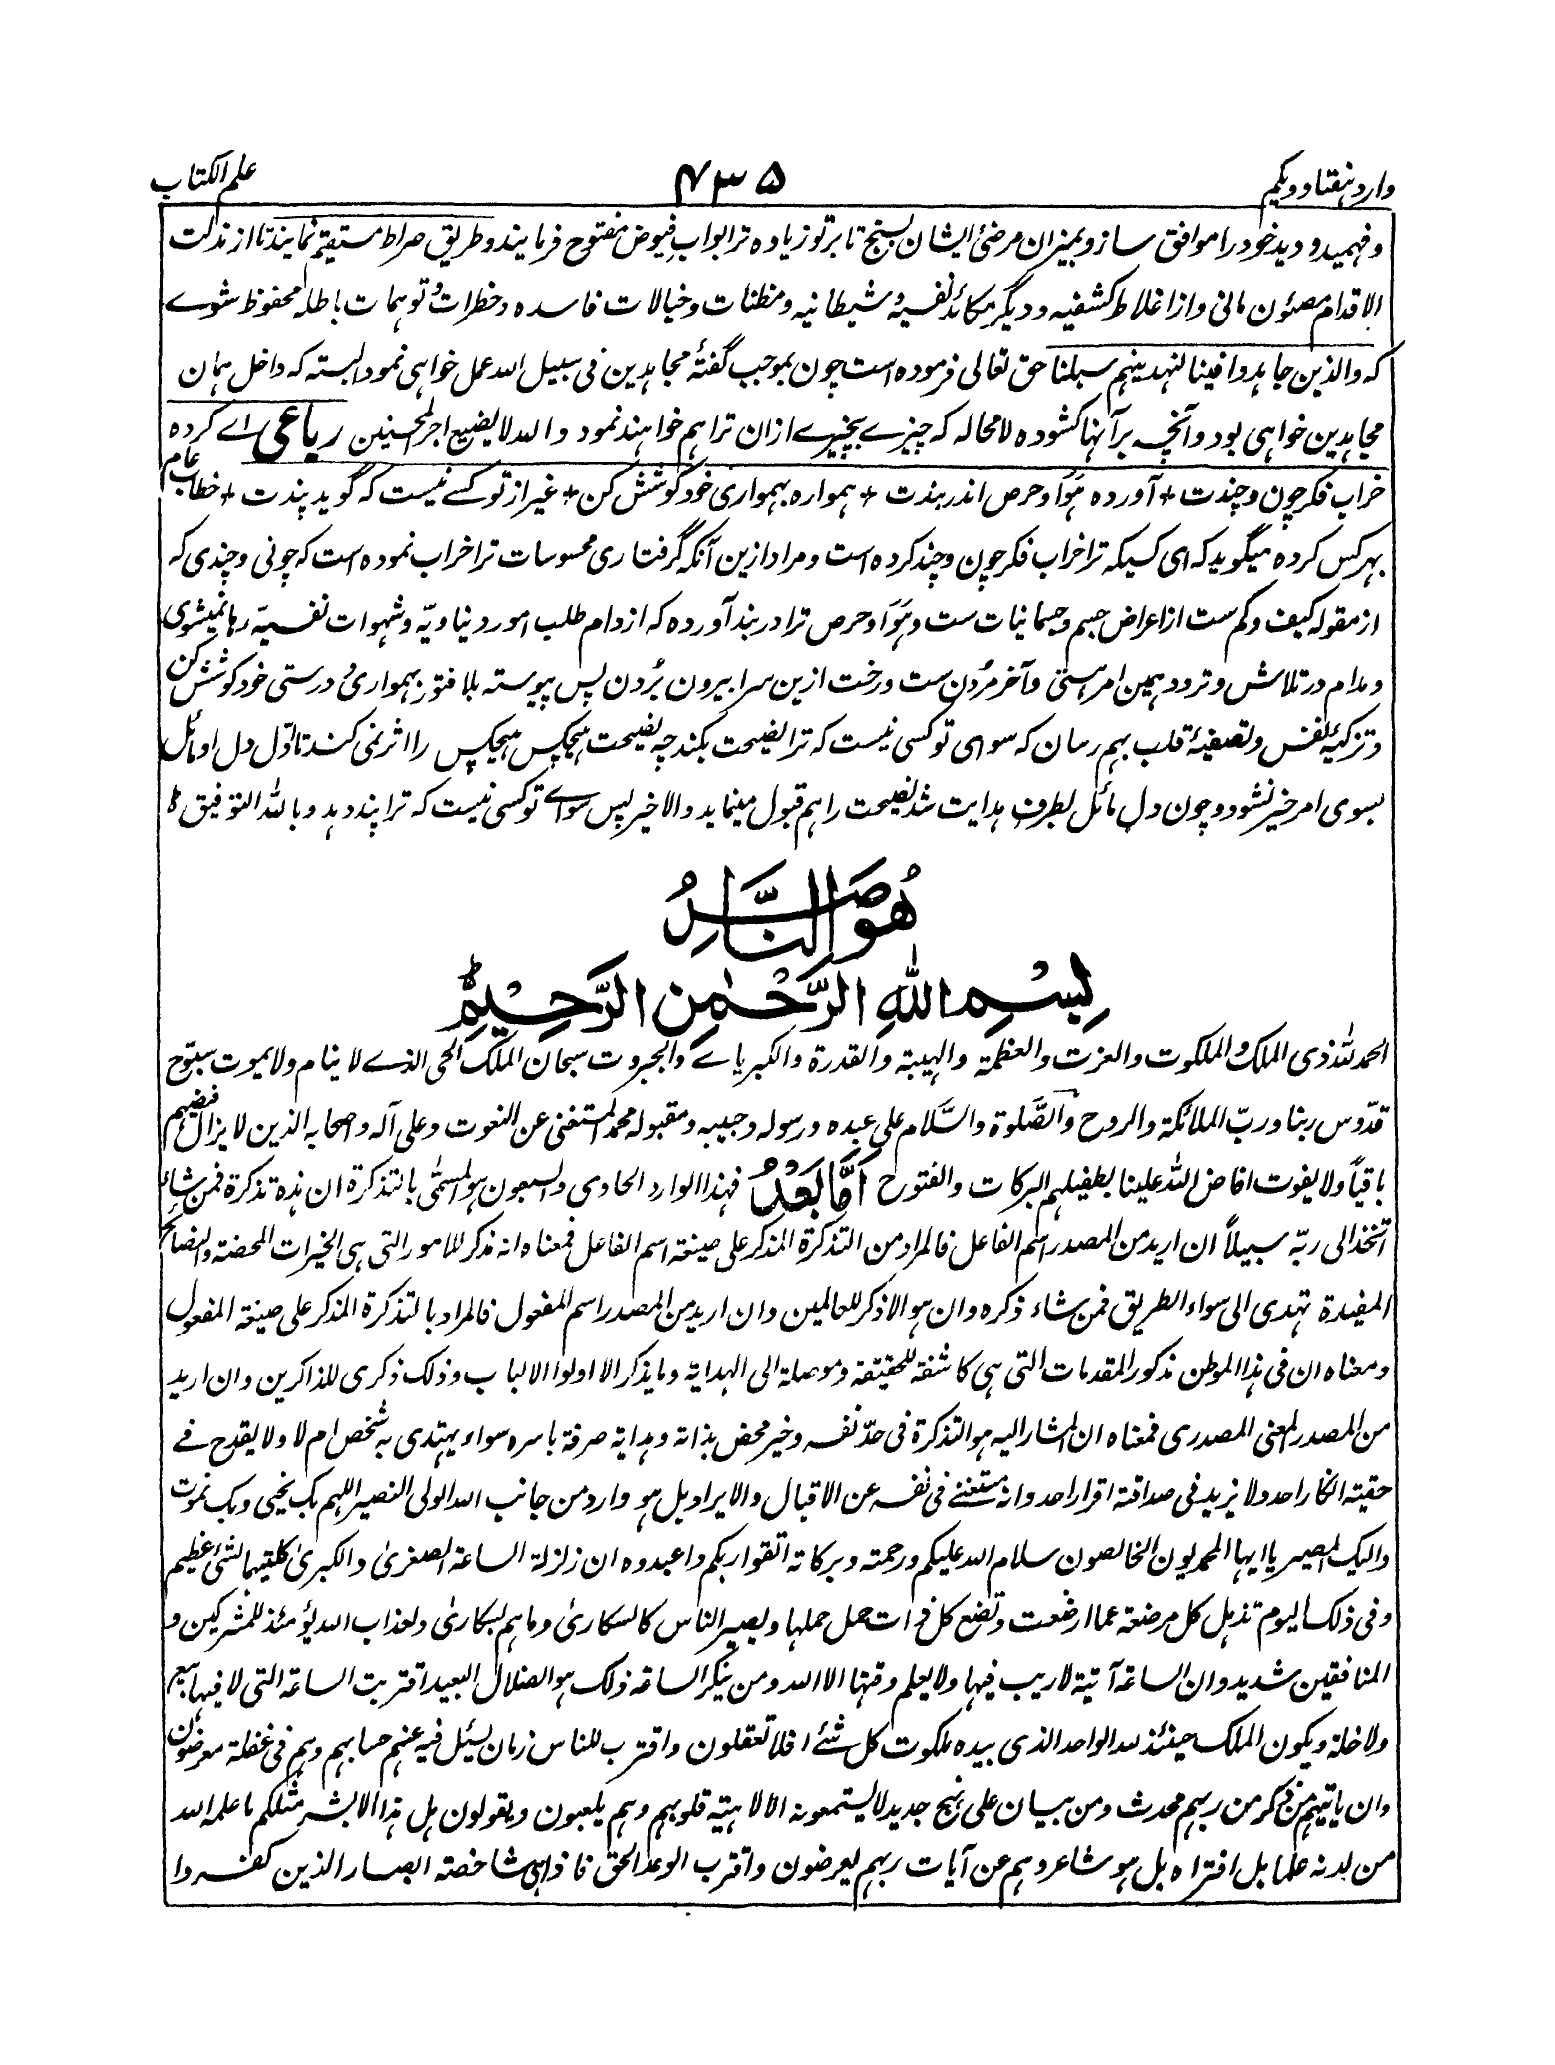 وارد ہفتاد و یکم
۴۳۵
علم الکتاب
و فہمید و دید خود را موافق ساز و بمیزان مرضیٔ ایشان بسنج تا بر تو زیادہ تر ابواب فیوض مفتوح فرمایند و طریق صراط مستقیم نمایند تا از ندلت
الاقدام مصئون مانی و از اغلاط کشفیہ و دیگر مکائد نفسیہ و شیطانیہ و مظنات و خیالات فاسدہ و خطرات و توہمات باطلہ محفوظ شوے
کہ والذین جاہدوا فینا لنہدینہم سبلنا حق تعالی فرمودہ است چون بموجب گفتۂ مجاہدین فی سبیل اللہ عمل خواہی نمود البتہ کہ داخل ہمان
مجاہدین خواہی بود و آنچہ بر آنہا کشودہ لا محالہ کہ چیزے بچیزے ازان ترا ہم خواہند نمود واللہ لا یضیع اجر المحسنین رباعی اے کردہ
خراب فکر چون و چندت + آوردہ ہَوَا و حرص اندر بندت + ہموارہ بہمواری خود کوشش کن + غیر از تو کسے نیست کہ گوید پندت + خطاب عام
بہر کس کردہ میگوید کہ ای کسیکہ ترا خراب فکر چون و چند کردہ است و مراد ازین آنکہ گرفتاری محسوسات ترا خراب نمودہ است کہ چونی و چندی کہ
از مقولہ کیف و کم ست از اعراض جسم و جسمانیات ست و ہَوَا و حرص ترا در بند آوردہ کہ از دام طلب امور دنیاویّہ و شہوات نفسیّہ رہا نمیشوی
و مدام در تلاش و تردد ہمین امر ہستی و آخر مُردن ست و رخت ازین سرا بیرون بُردن پس پیوستہ بلا فتور بہمواریٔ و درستی خود کوشش کن
و تزکیۂ نفس و تصفیۂ قلب بہم رسان کہ سوای تو کسی نیست کہ ترا نصیحت بکند چہ نصیحت ہیچکس ہیچکس را اثر نمی کند تا اوّل دل او مائل
بسوی امر خیر نشود و چون دل مائل بطرف ہدایت شد نصیحت را ہم قبول مینماید والا خیر پس سواے تو کسی نیست کہ ترا پند دہد و باللہ التوفیق
ھُوَ النَّاصِرُ
بِسْمِ اللّٰہِ الرَّحْمٰنِ الرَّحِیْمِ
الحمد للہ ذی الملک و الملکوت والعزت والعظمۃ والہیبۃ والقدرۃ والکبریاے والجبروت سبحان الملک الحی الذے لا ینام ولا یموت سبّوح
قدّوس ربنا و ربّ الملائکۃ والروح والصَّلوٰۃ والسَّلام علی عبدہ و رسولہ و حبیبہ و مقبولہ محمد المستغنی عن النعوت و علی آلہ و اصحابہ الذین لا یزال فیضہم
باقیاً ولا یفوت افاض اللہ علینا بطفیلہم البرکات والفتوح اَمَّا بَعْدُ فہذا الوارد الحادی والسبعون ہو المسمّٰی بالتذکرۃ ان ہذہ تذکرۃ فمن شاء
اتخذ الی ربّہ سبیلاً ان ارید من المصدر اسم الفاعل فالمراد من التذکرۃ المذکر علی صیغۃ اسم الفاعل فمعناہ انہ مذکر للامور التی ہی الخیرات المحضۃ والنصائح
المفیدۃ تہدی الی سواء الطریق فمن شاء ذکرہ وان ہو الا ذکر للعالمین وان ارید من المصدر اسم المفعول فالمراد بالتذکرۃ المذکر علی صیغۃ المفعول
ومعناہ ان فی ہذا الموطن مذکور المقدمات التی ہی کاشفۃ للحقیقۃ و موصلۃ الی الہدایۃ وما یذکر الا اولوا الالباب و ذلک ذکری للذاکرین وان ارید
من المصدر المعنی المصدری فمعناہ ان المشار الیہ ہو التذکرۃ فی حدّ نفسہ و خیر محض بذاتہ و ہدایۃ صرفۃ باسرہ سواء یہتدی بہ شخص ام لا ولا یقدح فے
حقیتہ انکار احد ولا یزید فی صداقتہ اقرار احد وانہ مستغنے فی نفسہ عن الاقبال والایراد بل ہو وارد من جانب اللہ الولی النصیر اللہم بک نحیی و بک نموت
والیک المصیر یا ایہا المحمدیون الخالصون سلام اللہ علیکم ورحمتہ وبرکاتہ اتقوا ربکم واعبدوہ ان زلزلۃ الساعۃ الصغریٰ والکبریٰ کلیتہما لشیٔ عظیم
وفی ذلک الیوم تذہل کل مرضعۃ عما ارضعت وتضع کل ذات حمل حملہا ویصیر الناس کالسکاریٰ وما ہم بسکاریٰ ولعذاب اللہ یومئذ للمشرکین و
المنافقین شدید وان الساعۃ آتیۃ لا ریب فیہا ولا یعلم وقتہا الا اللہ ومن ینکر الساعۃ ذلک ہو الضلال البعید اقتربت الساعۃ التی لا فیہا بیع
ولا خلۃ ویکون الملک حینئذ للہ الواحد الذی بیدہ ملکوت کل شئے افلا تعقلون واقترب للناس زمان یسئل فیہ عنہم حسابہم وہم فی غفلۃ معرضون
وان یاتیہم من ذکر من ربہم محدث ومن بیان علی نہج جدید لا یستمعونہ الا لاہیۃ قلوبہم وہم یلعبون ویقولون ہل ہذا الا بشر مثلکم ما علمہ اللہ
من لدنہ علما بل افتراہ بل ہو شاعر وہم عن آیات ربہم یعرضون واقترب الوعد الحق فاذا ہی شاخصۃ ابصار الذین کفروا